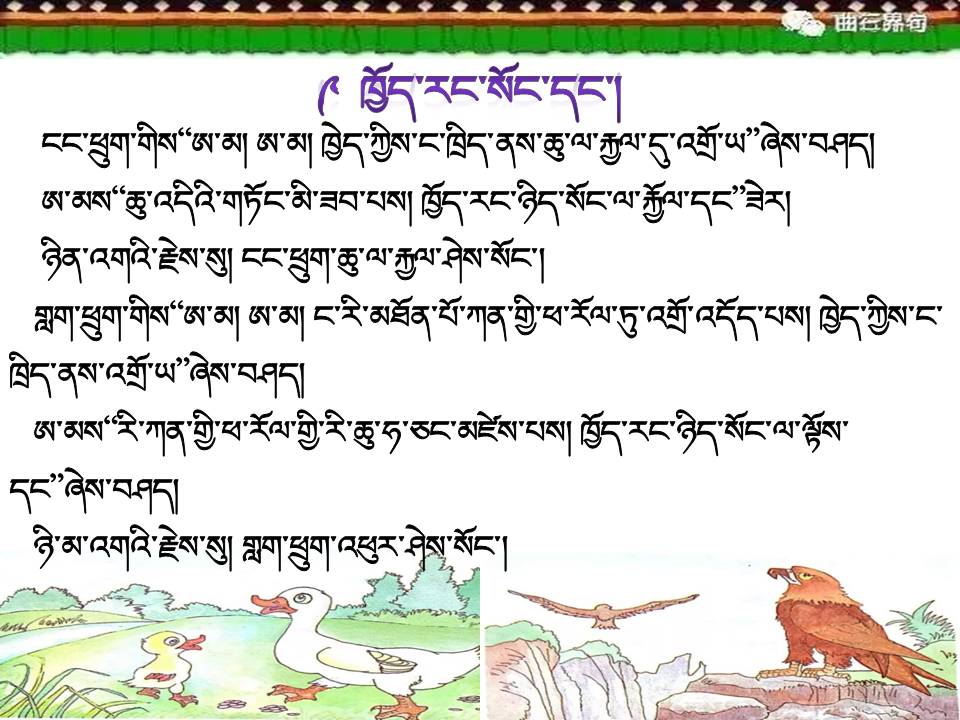 曲云界句
༩ ཁྱོད་རང་སོང་དང་།
ངང་ཕྲུག་གིས“ཨ་མ། ཨ་མ། ཁྱེད་ཀྱིས་ང་ཁྲིད་ནས་ཆུ་ལ་རྐྱལ་དུ་འགྲོ་ཡ”ཞེས་བཤད།
ཨ་མས“ཆུ་འདིའི་གཏོང་མི་ཟབ་པས། ཁྱོད་རང་ཉིད་སོང་ལ་རྐྱོལ་དང”ཟེར།
ཉིན་འགའི་རྗེས་སུ། ངང་ཕྲུག་ཆུ་ལ་རྐྱལ་ཤེས་སོང་།
གླག་ཕྲུག་གིས“ཨ་མ། ཨ་མ། ང་རི་མཐོན་པོ་ཀན་གྱི་ཕ་རོལ་ཏུ་འགྲོ་འདོད་པས། ཁྱེད་ཀྱིས་ང་
ཁྲིད་ནས་འགྲོ་ཡ”ཞེས་བཤད།
ཨ་མས“རི་ཀན་གྱི་ཕ་རོལ་གྱི་རི་ཆུ་ཧ་ཅང་མཛེས་པས། ཁྱོད་རང་ཉིད་སོང་ལ་ལྟོས་
དང”ཞེས་བཤད།
ཉི་མ་འགའི་རྗེས་སུ། གླག་ཕྲུག་འཕུར་ཤེས་སོང་།